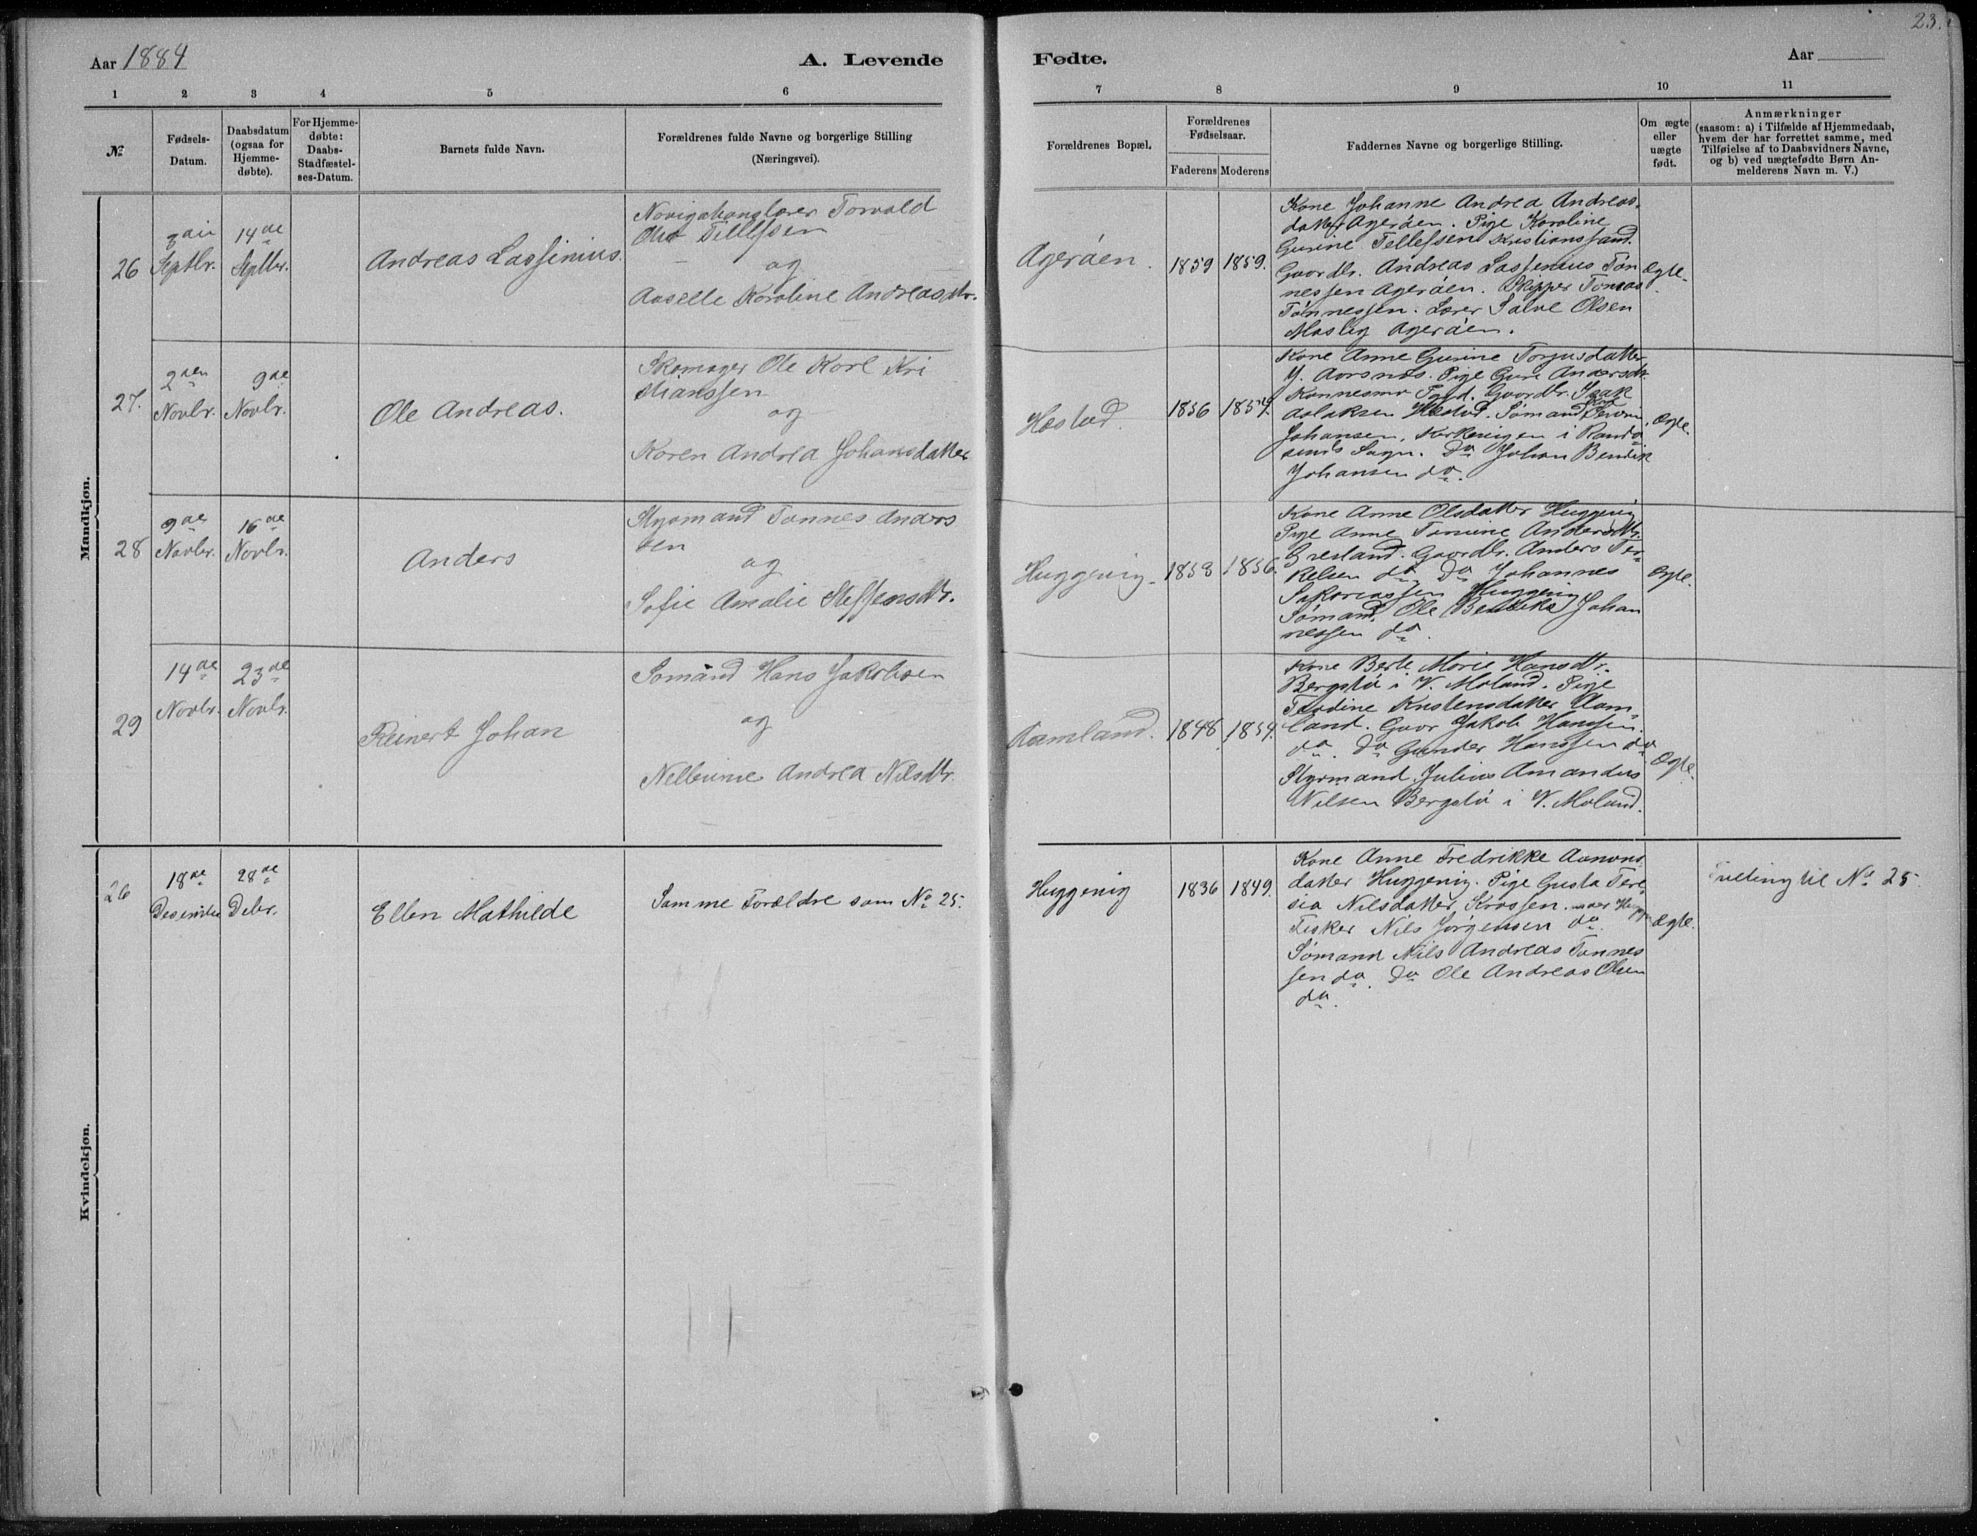 23.
Aar 1884
A. Levende
Fødte.
Aar
1 2 3 4 5 6
7 8 9 10 11
№
Fødsels-
Datum.
Daabsdatum
(ogsaa for
Hjemme-
døbte).
For Hjemme-
døbte:
Daabs-
Stadfæstel-
ses-Datum.
Barnets fulde Navn.
Forældrenes fulde Navne og borgerlige Stilling
(Næringsvei).
Forældrenes Bopæl.
Forældrenes
Fødselsaar.
Faderens
Moderens
Faddernes Navne og borgerlige Stilling.
Om ægte
eller
uægte
født.
Anmærkninger
(saasom: a) i Tilfælde af Hjemmedaab,
hvem der har forrettet samme, med
Tilføielse af to Daabsvidners Navne,
og b) ved uægtefødte Børn An-
melderens Navn m. V.)
Mandkjøn.
26
Septbr.
14de
Septbr.
Andreas Lassenius.
Torvald
Tellefsen
og
Karoline Andreasdtr.
Agerøen.
1859
1859.
Kone Johanne Andrea Andreas-
datter Agerøen. Pige Karoline
Gurine Tellefsen Kristianssand.
Gaardbr. Andreas Lassenius Tøn
nessen Agerøen. Skipper Tønnes
Tønnessen. Lærer Salve Olsen
Agerøen.
Ægte.
27.
2den
Novbr.
9de
Novbr.
Ole Andreas.
Skomager Ole Karl Kri
stianssen
og
Karen Andrea Johansdatter
Hæstad.
1856
1854.
Kone Anne Gurine Torjusdatter
Y. Aarsnæs. Pige Gure Andersdtr.
Gaardbr. Isak
Aslaksen Hæstad. Sømand
Johansen, i Rande
sunds Sogn. Do Johan Bendik
Johansen do.
Ægte.
28
9de
Novbr.
16de
Novbr.
Anders
Styrmand Tønnes Anders
sen
og
Sofie Amalie Steffensdtr.
Huggenig
1858
1856.
Kone Anne Olsdatter Huggenig
Pige Anne Tomine Andersdtr.
Gaardbr. Anders Ter-
kelsen do. Do Johannes
Sakariassen Huggenig
Sømand Ole Bendiks Johan
nessen do.
Ægte.
29
14de
Novbr.
23de
Novbr.
Reinert Johan
Sømand Hans Jakobsen
og
Andrea Nilsdtr.
Aamland.
1848
1854.
Kone Berte Marie Hansdtr.
Bergstø i V. Moland. Pige
Kristensdatter Aam
land. Gaar Jakob Hanssen
do. Do Gunder Hanssen do
Styrmand Julius Amandus
Nilsen Bergstø i V. Moland.
Ægte.
Kvindekjøn.
26
18de
Desember
28de
Debr.
Ellen Mathilde
Samme Forældre som No 25.
Huggenig
1836
1849.
Kone Anne Fredrikke Aanons
datter Huggenig. Pige Gusta Tere
sia Nilsdatter Krossen.
Fisker Nils Jørgensen do.
Sømand Nils Andreas Tønnes
sen do. Do Ole Andreas Olsen
do.
Ægte.
Tvilling til No 25.